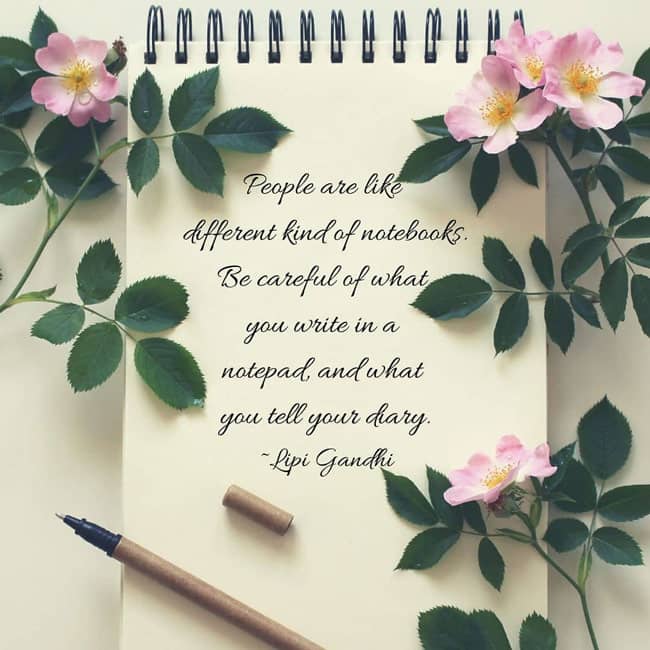 People are like
different kind of notebooks.
Be careful of what
you write in a
notepad, and what
you tell your diary.
~Lipi Gandhi